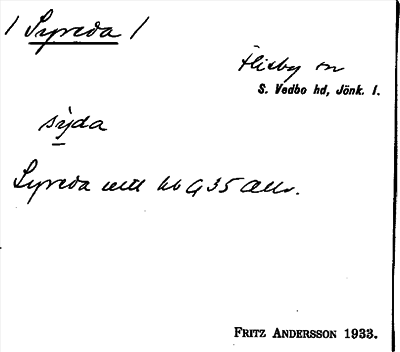 / Syreda /
Flisby sn
S. Vedbo hd, Jönk. l.
sỳda
Syreda utt hb G 35 Älls.
FRITZ ANDERSSON 1933.